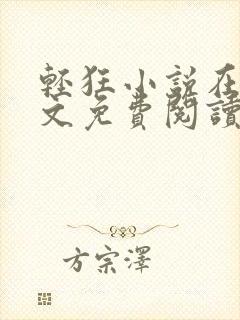 輕狂小說在
文免費閱讀
方宗澤